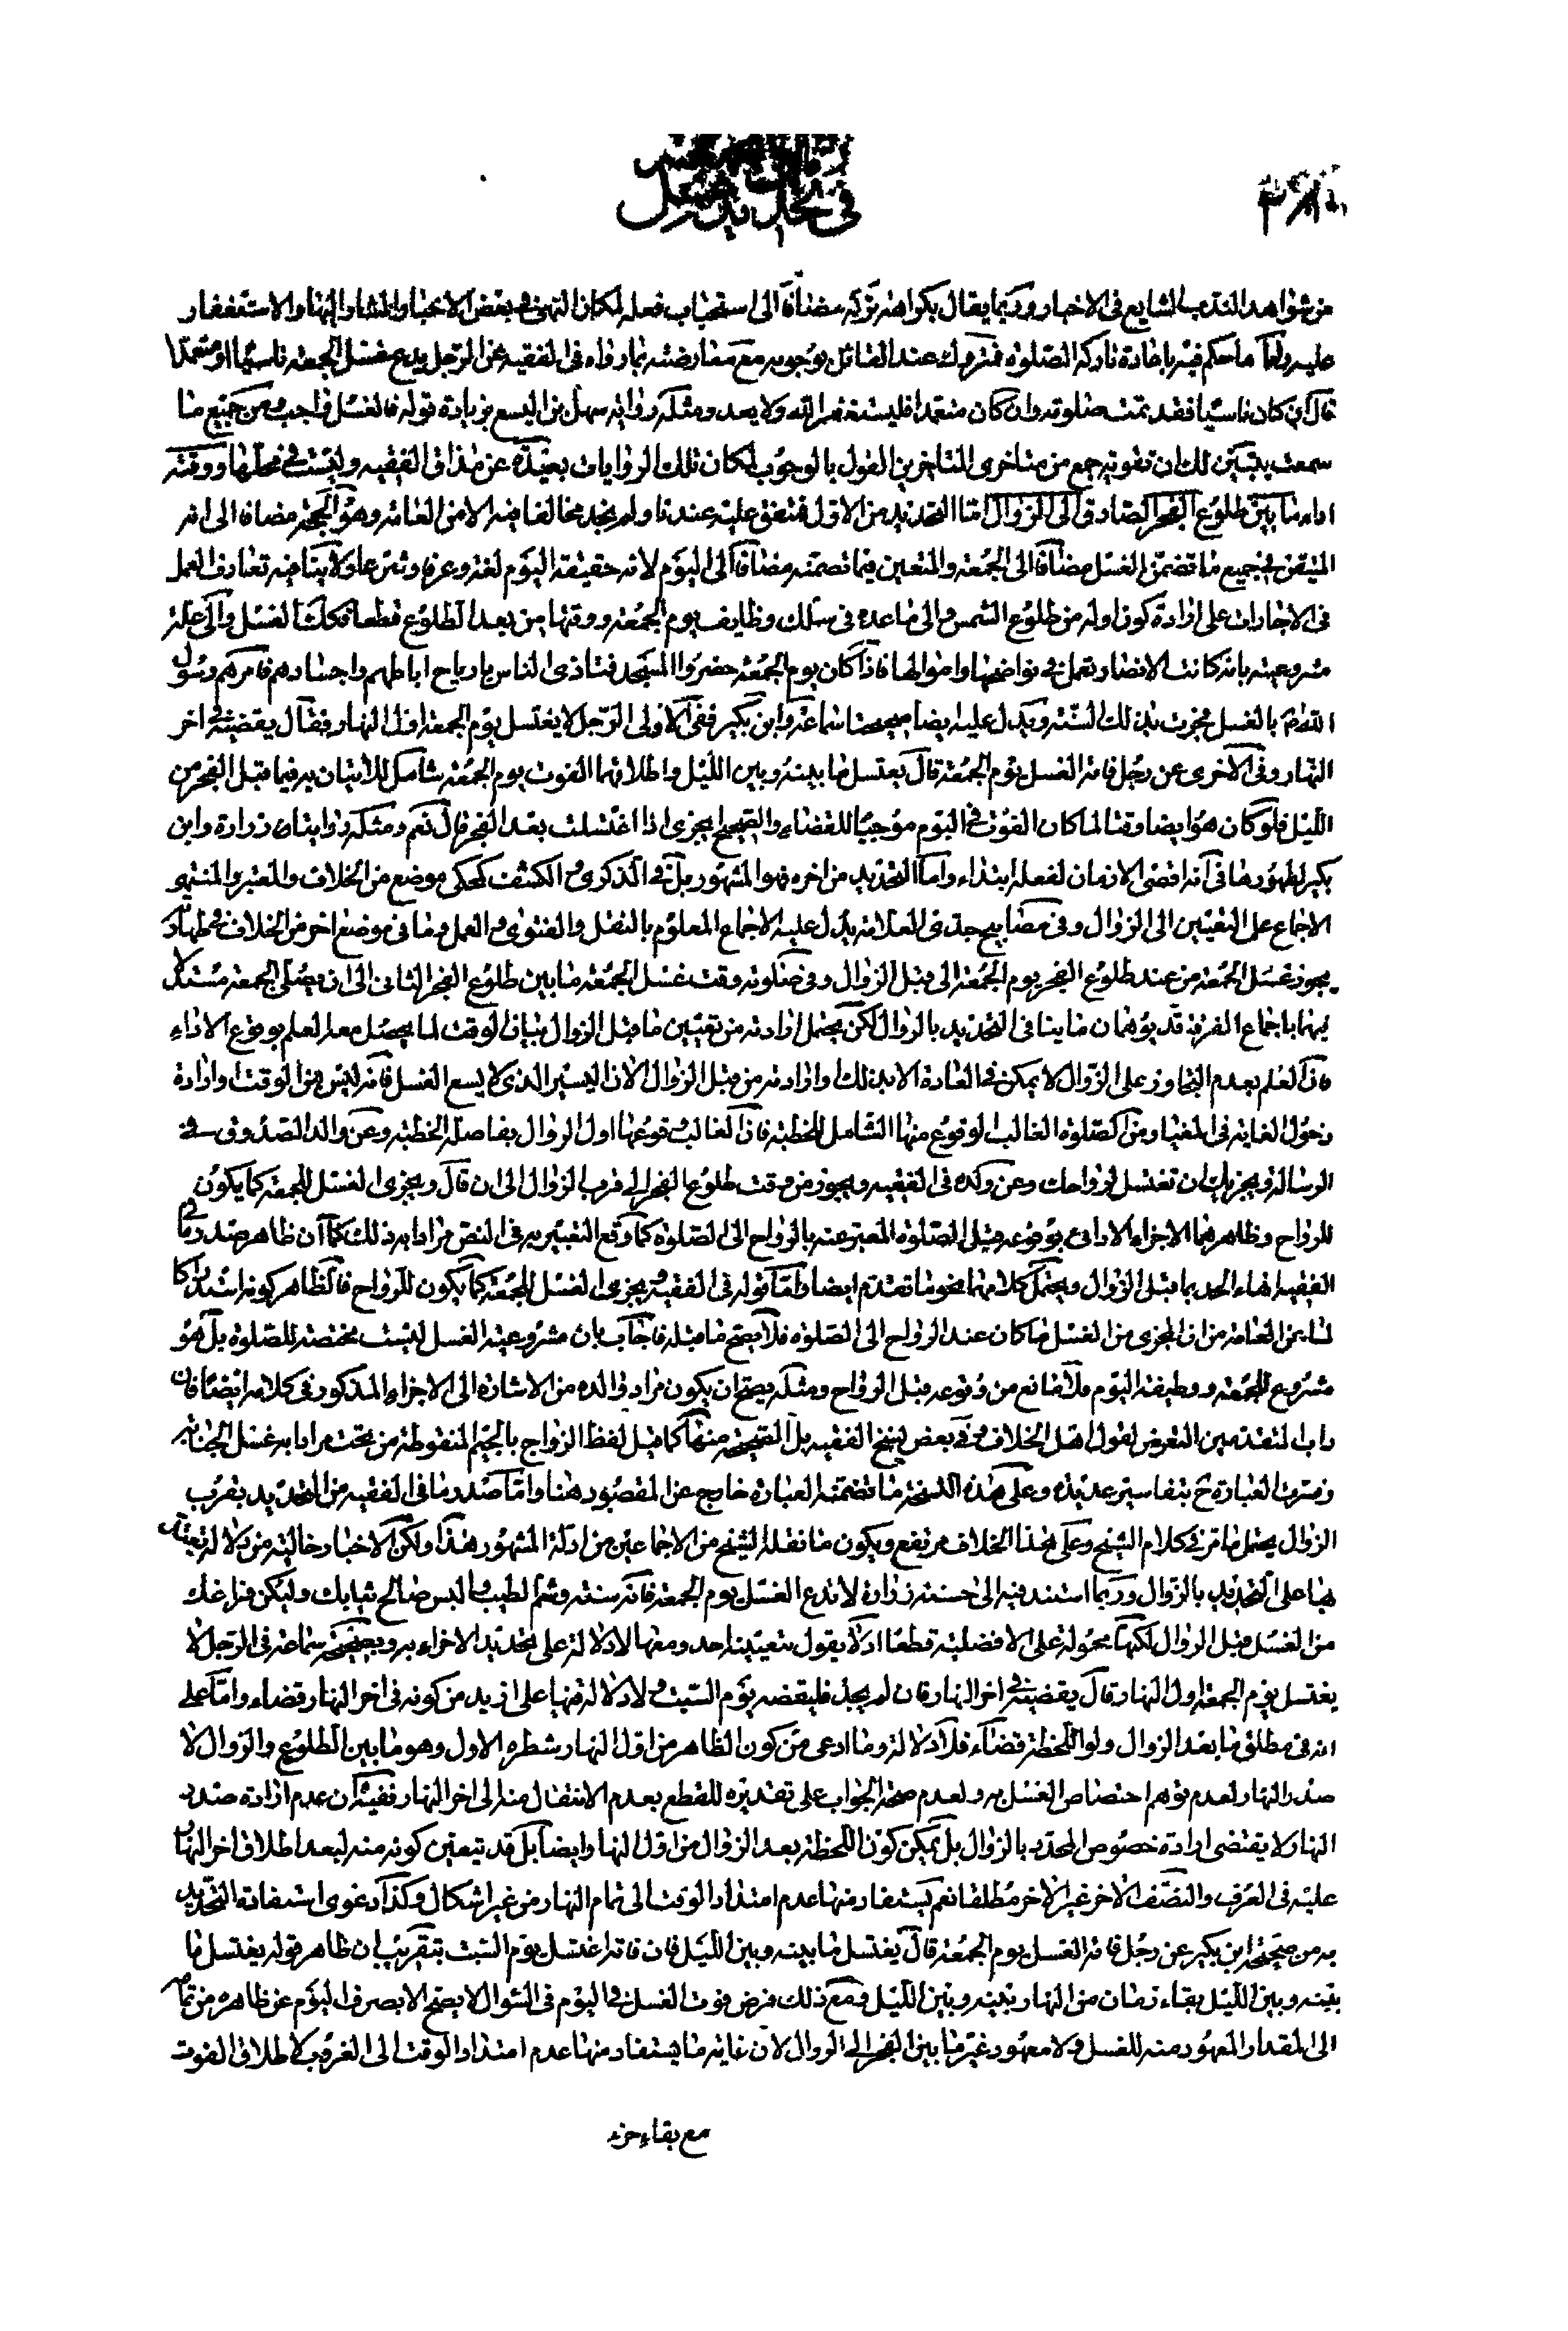 من شواهد الندب الشايع في الاخبار وربما يقال بكراهة تركه مضافا الى استحباب فعله لمكان النهى في بعض الاخبار المشار اليها والاستغفار
عليه واما ما حكم فيه باعادة تاركه الصلوة فمتروك عند القائل بوجوبه مع معارضته بما رواه في الفقيه عن الرجل يدع غسل الجمعة ناسيا او متعمدا
قال ان كان ناسيا فقد تمت صلوته وان كان متعمدا فليستغفر الله ولا يعد ومثله رواية سهل بن اليسع بزيادة قوله فالغسل واجب ومن جميع ما
سمعت يتبين لك ان تقوية جمع من متاخرى المتاخرين القول بالوجوب لمكان تلك الروايات بعيدة عن مذاق الفقيه وليست في محلها ووقته
اداء ما بين طلوع الفجر الصادق الى الزوال اما التحديد من الاول فمتفق عليه عندنا ولم نجد مخالفا فيه الا من العامة وهو الحجة مضافا الى انه
المتيقن في جميع ما تضمن الغسل مضافا الى الجمعة والمتعين فيما تضمنه مضافا الى اليوم لانه حقيقة اليوم لغة وعرفا وشرعا ولا ينافيه تعارف العمل
في الاجارات على ارادة كون اوله من طلوع الشمس والى ما عده في سلك وظايف يوم الجمعة ووقتها من بعد الطلوع قطعا فكك الغسل والى علة
مشروعيته بانه كانت الانصار تعمل في نواضحها واموالها فاذا كان يوم الجمعة حضروا المسجد فتاذى الناس بارياح اباطهم واجسادهم فامرهم رسول
الله ص بالغسل فجرت بذلك السنة ويدل عليه ايضا صحيحتا سماعة وابن بكير ففى الاولى الرجل لا يغتسل يوم الجمعة اول النهار فقال يقضيه في اخر
النهار وفي الاخرى عن رجل فاته الغسل يوم الجمعة قال يغتسل ما بينه وبين الليل واطلاقهما الفوت يوم الجمعة شامل للاتيان به فيما قبل الفجر من
الليل فلو كان هو ايضا وقتا لما كان الفوت في اليوم موجبا للقضاء والصحيح ايجزى اذا اغتسلت بعد الفجر قال نعم ومثله روايتان زرارة وابن
بكير لظهورها في انه اقصى الازمان لفعله ابتداء واما التحديد من اخره فهو المشهور بل في الذكرى وكشف كمحكى موضع من الخلاف والمعتبر والمنتهى
الاجماع على التعيين الى الزوال وفي مصابيح جدى العلامة يدل عليه الاجماع المعلوم بالنقل والفتوى والعمل وما في موضع اخر من الخلاف في طهارة
يجوز غسل الجمعة من عند طلوع الفجر يوم الجمعة الى قبل الزوال وفي صلوته وقت غسل الجمعة ما بين طلوع الفجر الثاني الى ان يصلى الجمعة مستدلا
فيهما باجماع الفرقة قد يوهمان ما ينافى التحديد بالزوال لكن يحتمل ارادته من تعيين ما قبل الزوال بيان الوقت لما يحصل معه العلم بوقوع الاداء
فان العلم بعدم التجاوز على الزوال لا يمكن في العادة الا بذلك وارادته من قبل الزوال الان اليسير الذي لا يسع الغسل فانه ليس من الوقت وارادة
دخول الغاية في المغيا ومن الصلوة الغالب لوقوع منها الشامل للخطبة فان الغالب وقوعها اول الزوال بفاصلة الخطبة وعن والد الصدوق في
الرسالة ويجزيك ان تغتسل لرواحك وعن ولده في الفقيه ويجوز من وقت طلوع الفجر الى قرب الزوال الى ان قال ويجزى الغسل للجمعة كما يكون
للرواح وظاهرهما الاجزاء الاداءى بوقوعه قبل الصلوة المعبر عنه بالرواح الى الصلوة كما وقع التعبير به في النص مرادا به ذلك كما ان ظاهر صدر ما في
الفقيه انهاء الحد بما قبل الزوال ويحتمل كلامهما نحو ما تقدم ايضا واما قوله في الفقيه ويجزى الغسل للجمعة كما يكون للرواح فالظاهر كونه استدراكا
لما عن العامة من ان المجزى من الغسل ما كان عند الرواح الى الصلوة فلا يصح ما قبله فاجاب بان مشروعية الغسل ليست مختصة للصلوة بل هو
مشروع للجمعة ووظيفة اليوم فلا مانع من وقوعه قبل الرواح ومثله يصح ان يكون مراد والده من الاشارة الى الاجزاء المذكور في كلامه ايضا فان
داب المتقدمين التعرض لقول اهل الخلاف وفي بعض نسخ الفقيه بل الصحيحة منها كما قيل لفظ الزواج بالجيم المنقوطة من تحت مرادا به غسل الجنابة
وفسرت العبارة ح بتفاسير عديدة وعلى هذه النسخة ما تضمنه العبارة خارج عن المقصود هنا واما صدر ما في الفقيه من التحديد بقرب
الزوال يحتمل ما مر في كلام الشيخ وعلى هذا الخلاف مرتفع ويكون ما نقله الشيخ من الاجماعين من ادلة المشهور هذا ولكن الاخبار خالية من دلالة
هنا على التحديد بالزوال وربما استند فيه الى حسنة زرارة لا تدع الغسل يوم الجمعة فانه سنة وشم الطيب والبس صالح ثيابك وليكن فراغك
من الغسل قبل الزوال لكنها محمولة على الافضلية قطعا اذ لا يقول بتعيينه احد ومعها لا دلالة على تحديد الاجزاء به وبصحيحة سماعة في الرجل لا
يغتسل يوم الجمعة اول النهار قال يقضيه في اخر النهار فان لم يجد فليقضه يوم السبت ولا دلالة فيها على ازيد من كونه في اخر النهار قضاء واما على
انه في مطلق ما بعد الزوال ولو اللحظة قضاء فلا دلالة وما ادعى من كون الظاهر من اول النهار شطره الاول وهو ما بين الطلوع والزوال لا
صدر النهار لعدم توهم اختصاص الغسل به ولعدم صحة الجواب على تقديره للقطع بعدم الانتقال منه الى اخر النهار ففيه ان عدم ارادة صدر
النهار لا يقتضى ارادة خصوص المحدد بالزوال بل يمكن كون اللحظة بعد الزوال من اول النهار ايضا بل قد يتعين كونه منه لبعد اطلاق اخر النهار
عليه في العرف والنصف الاخر غير الاخر مطلقا نعم يستفاد منها عدم امتداد الوقت الى تمام النهار من غير اشكال وكذا دعوى استفادة التحديد
به من صحيحة ابن بكير عن رجل فاته الغسل يوم الجمعة قال يغتسل ما بينه وبين الليل فان فاته اغتسل يوم السبت بتقريب ان ظاهر قوله يغتسل ما
بينه وبين الليل بقاء زمان من النهار بينه وبين الليل ومع ذلك فرض فوت الغسل في اليوم في السؤال لا يصح الا بصرف اليوم عن ظاهره من تمامه
الى المقدار المعهود منه للغسل ولا معهود غير ما بين الفجر الى الزوال لان غاية ما يستفاد منها عدم امتداد الوقت الى الغروب لاطلاق الفوت
مع بقاء جزء